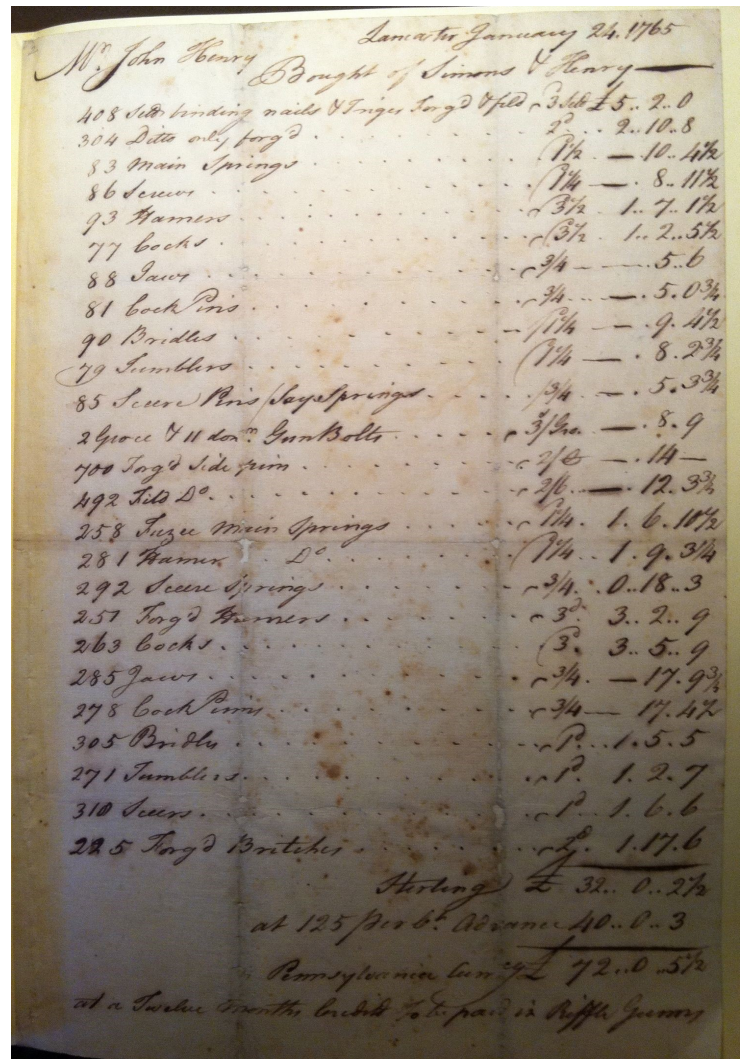 Lancaster January 24. 1765
Mr. John Henry
Bought of Simons & Henry
408 Sett binding nails & Triger Forg'd & fil'd @ 3 Sett £ 5 .. 2 .. 0
304 Ditto only forg'd 2d 2 .. 10 .. 8
83 Main Springs @ 1½ — 10 .. 4½
86 Screws @ 1¼ — 8 .. 11½
93 Hamers @ 3½ 1 .. 7 .. 1½
77 Cocks @ 3½ 1 .. 2 .. 5½
88 Jaws @ ¾ — 5 .. 6
81 Cock Pins @ ¾ — 5 . 0¾
90 Bridles @ 1¼ — 9 . 4½
79 Tumblers @ 1¼ — 8 . 2¾
85 Sceere Pins / Say Springs @ ¾ — 5 . 3¾
2 Groce & 11 dozn. Gun Bolts @ 3/Gro. — 8 . 9
700 Forg'd Side pins @ 2/ — 14 —
492 Fild Do. @ 2/6 — 12 . 3¾
258 Fuzee Main Springs @ 1¼ 1 . 6 . 10½
281 Hamer Do @ 1¼ 1 . 9 . 3¼
292 Sceere Springs @ ¾ 0 .. 18 .. 3
251 Forg'd Hamers @ 3d 3 .. 2 .. 9
263 Cocks @ 3d 3 .. 5 .. 9
285 Jaws @ ¾ — 17 . 9¾
278 Cock Pins @ ¾ — 17 . 4½
305 Bridles @ 1d 1 . 5 . 5
271 Tumblers @ 1d 1 . 2 . 7
310 Sceers @ 1d 1 . 6 . 6
225 Forg'd Britches @ 2d 1 . 17 . 6
Sterling £ 32 .. 0 .. 2½
at 125 per Ct. Advance 40 .. 0 .. 3
Pennsylvania Curr'cy £ 72 .. 0 .. 5½
at a Twelve months Credit to be paid in Riffle Gunns